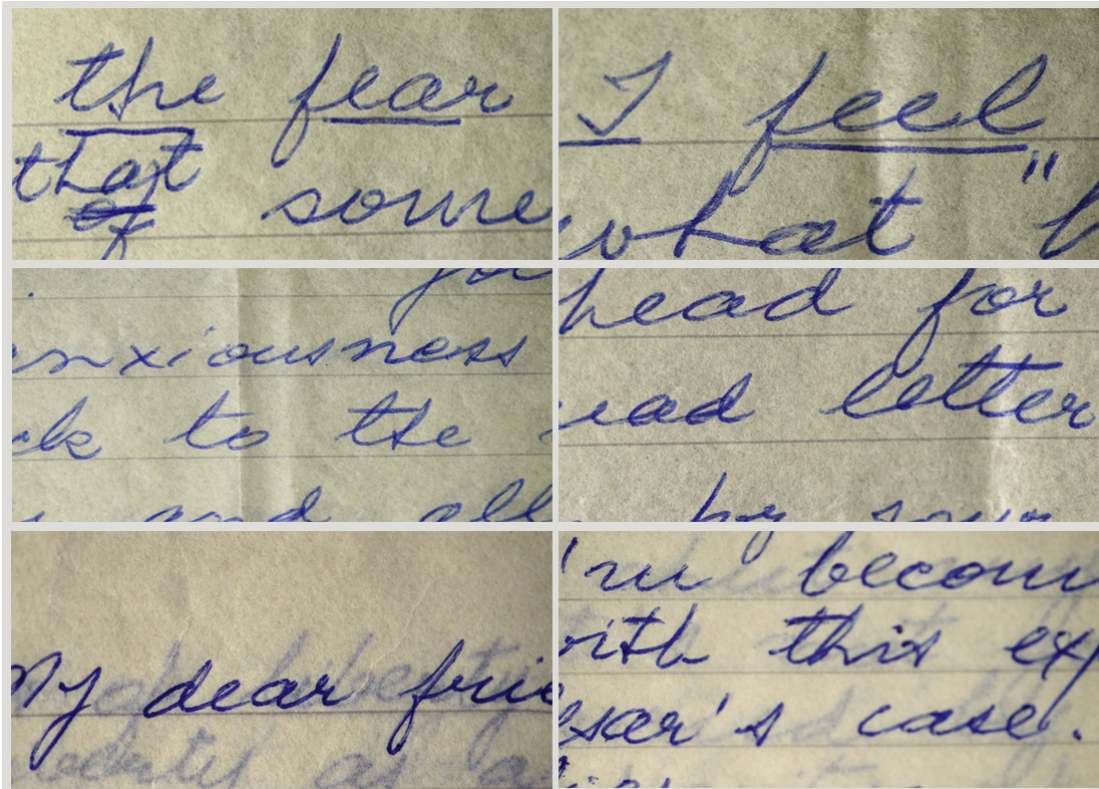 the fear
that
of some
I feel
what "
for
anxiousness
to the
and all
head for
letter
by your
My dear
becom
with this ex
case.